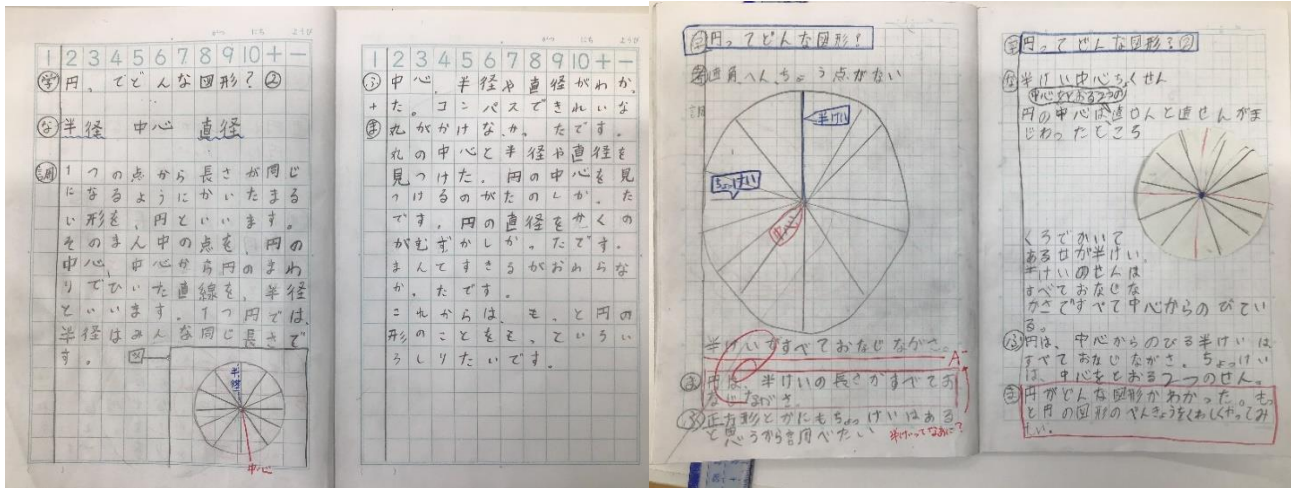 がつ にち ようび
1 2 3 4 5 6 7 8 9 10 + −
学 円、てどんな図形？②
な 半径 中心 直径
調 1つの点から長さが同じ
になるようにかいたまる
い形を、円といいます。
そのまん中の点を、円の
中心、中心から円のまわ
りでひいた直線を、半径
といいます。1つ円では、
半径はみんな同じ長さで
す。 図
半径
中心
がつ にち ようび
1 2 3 4 5 6 7 8 9 10 + −
ふ 中心、半径や直径がわか、
+ た。コンパスできれいな
ま 丸がかけなか、たです。
丸の中心と半径や直径を
見つけた。円の中心を見
つけるのがたのしか、た
です。円の直径をかくの
がむずかしか、たです。
まんてすきるがおわらな
か、たです。
これからは、も、と円の
形のことをも、といろい
ろしりたいです。
学 円ってどんな図形？
直角へん、ちょう点がない
調
半けい
ちょっけい
中心
半けいすべておなじながさ。
A
ま 円は、半けいの長さがすべてお
なじながさ。
ふ 正方形とかにもちょっけいはある
と思うから調べたい
半けいってなあに？
学 円ってどんな図形？②
な 半けい中心ちょくせん
中心をとおる2つの
円の中心は、直せんと直せんがま
じわったところ
くろでかいて
あるせが半けい。
半けいのせんは
すべておなじな
がさですべて中心からのびてい
る。
ふ 円は、中心からのびる半けいは
すべておなじながさ。ちょっけい
は、中心をとおる2つのせん。
ま 円がどんな図形かわかった。もっ
と円の図形のべんきょうをくわしくやってみ
たい。